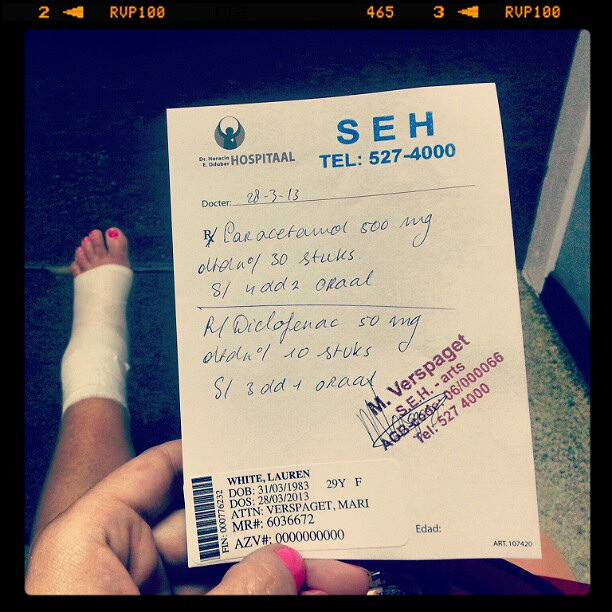 2 RVP100 465 3 RVP100
Dr. Horacio
E. Oduber HOSPITAAL
SEH
TEL: 527-4000
Docter: 28-3-13
R/ Paracetamol 500 mg
dtd nº 30 stuks
S/ 4 dd 2 oraal
R/ Diclofenac 50 mg
dtd nº 10 stuks
S/ 3 dd 1 oraal
M. Verspaget
S.E.H. - arts
AGB-code: 06/000066
Tel: 527 4000
FIN: 000776232
WHITE, LAUREN
DOB: 31/03/1983 29Y F
DOS: 28/03/2013
ATTN: VERSPAGET, MARI
MR#: 6036672
AZV#: 0000000000
Edad:
ART. 107420